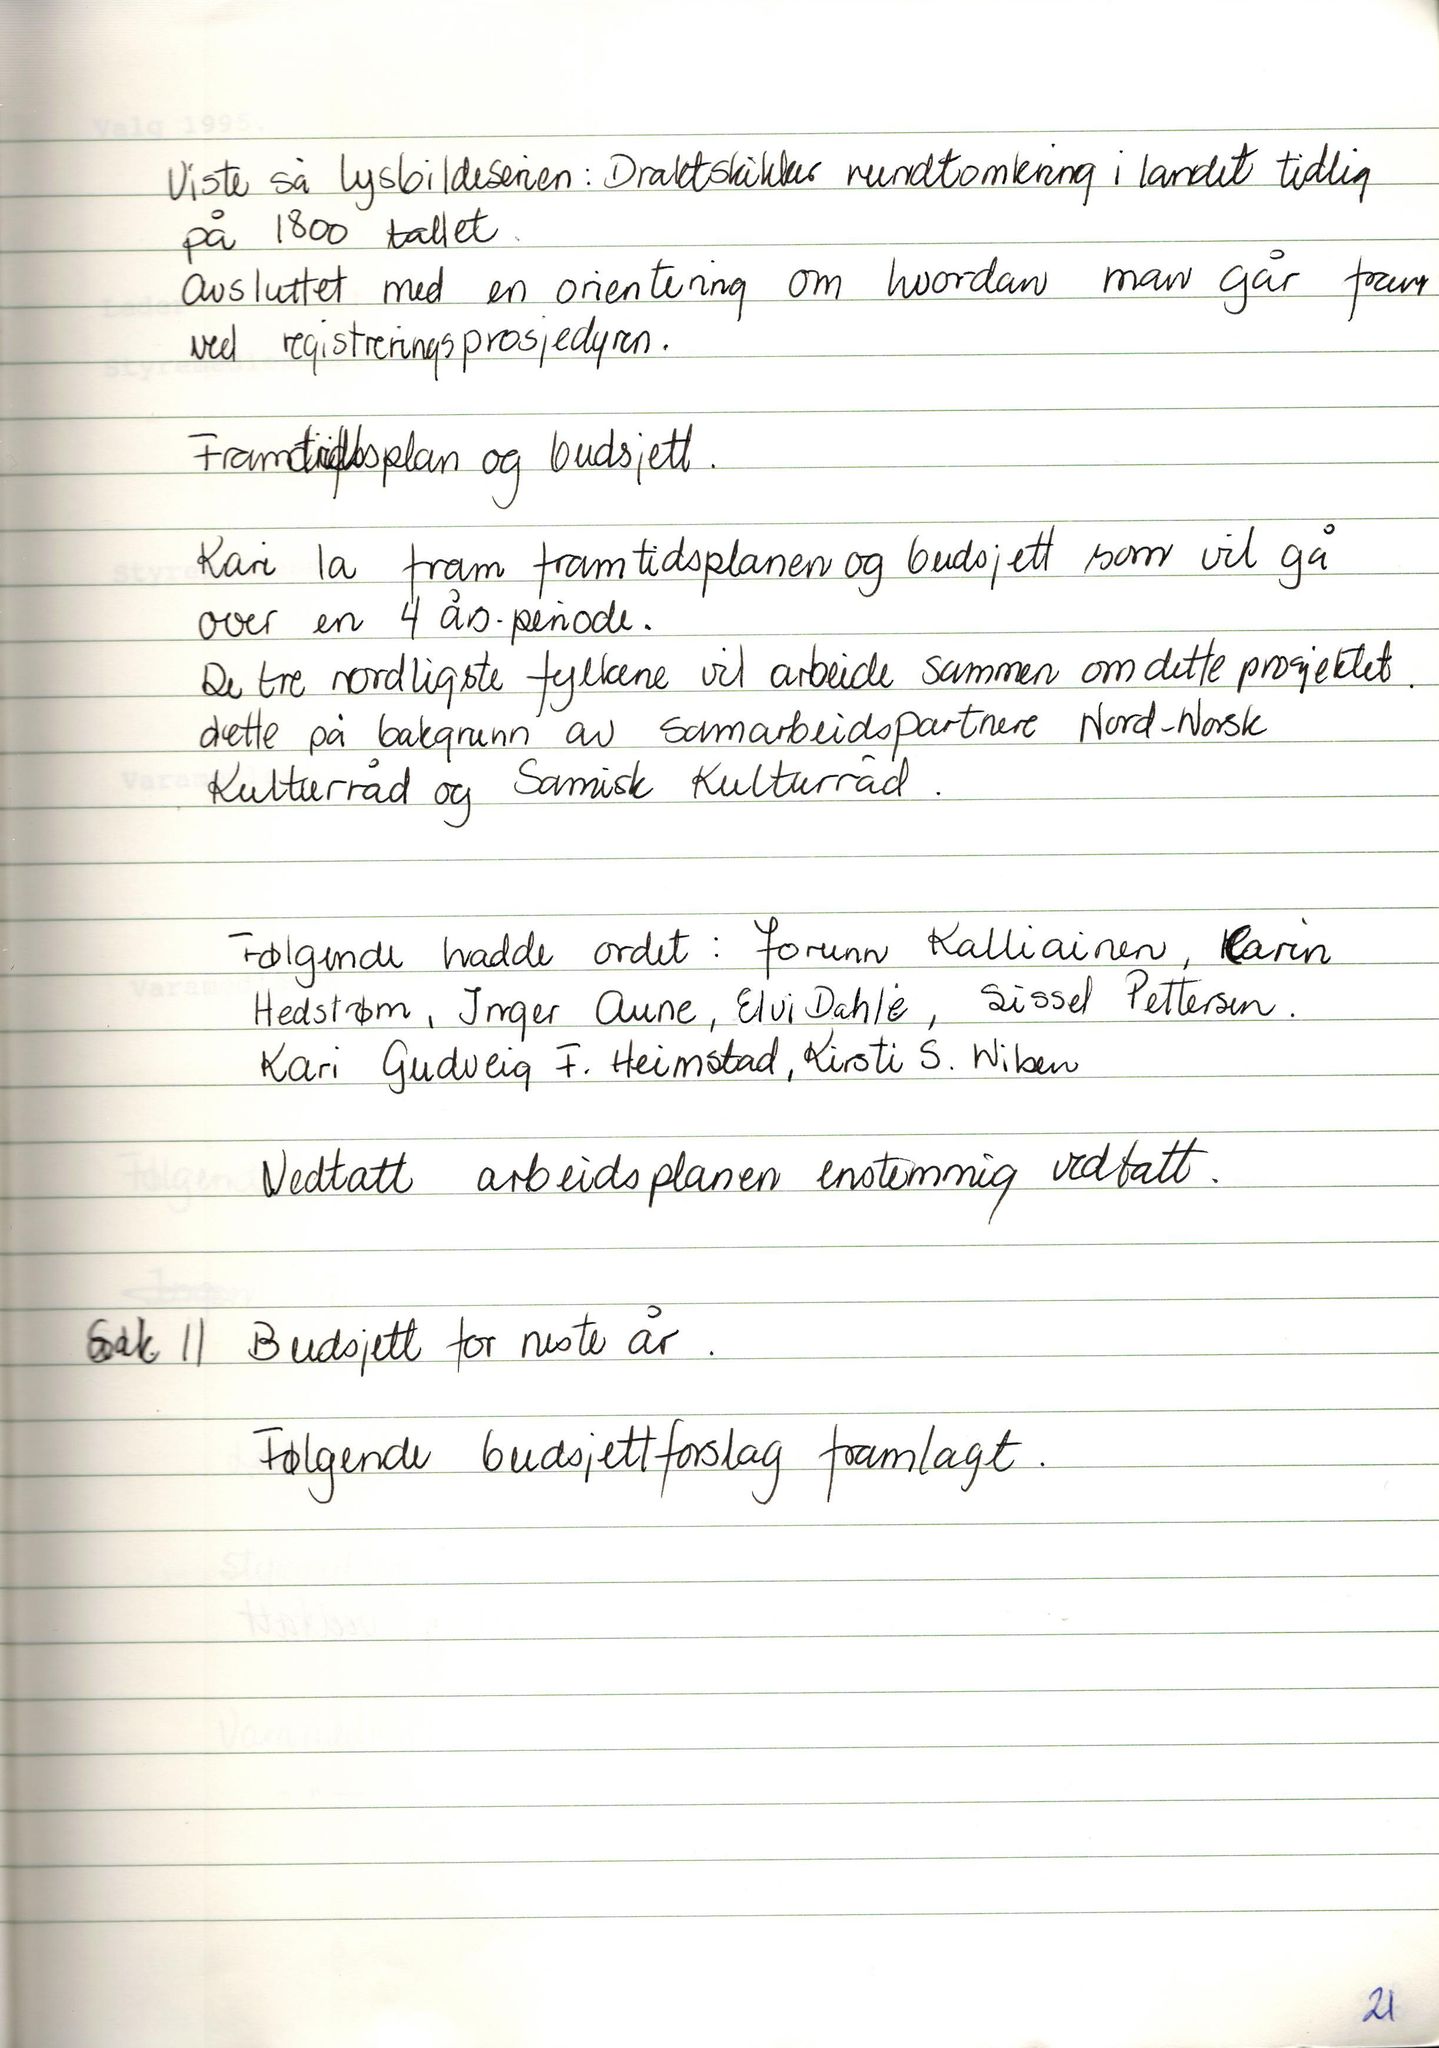 Viste så lysbildeserien: Draktskikker rundtomkring i landet tidlig
på 1800 tallet.
Avsluttet med en orientering om hvordan man går fram
ved registreringsprosjedyren.
Framtidsplan og budsjett.
Kari la fram framtidsplanen og budsjett som vil gå
over en 4 års-periode.
De tre nordligste fylkene vil arbeide sammen om dette prosjektet.
dette på bakgrunn av samarbeidspartnere Nord-Norsk
Kulturråd og Samisk Kulturråd.
Følgende hadde ordet: Jorunn Kalliainen, Karin
Hedstrøm, Inger Aune, Elvi Dahle, Sissel Pettersen.
Kari Gudveig F. Heimstad, Kirsti S. Wiben
Vedtatt arbeidsplanen enstemmig vedtatt.
Sak 11 Budsjett for neste år.
Følgende budsjettforslag framlagt.
21